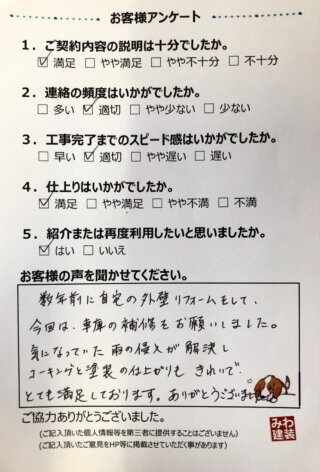 お客様アンケート
1．ご契約内容の説明は十分でしたか。
☑満足 □やや満足 □やや不十分 □不十分
2．連絡の頻度はいかがでしたか。
□多い ☑適切 □やや少ない □少ない
3．工事完了までのスピード感はいかがでしたか。
□早い ☑適切 □やや遅い □遅い
4．仕上りはいかがでしたか。
☑満足 □やや満足 □やや不満 □不満
5．紹介または再度利用したいと思いましたか。
☑はい □いいえ
お客様の声を聞かせてください。
数年前に自宅の外壁リフォームをして、
今回は、車庫の補修をお願いしました。
気になっていた雨の侵入が解決し
コーキングと塗装の仕上がりも きれいで、
とても満足しております。ありがとうございました
ご協力ありがとうございました。
（ご記入頂いた個人情報等を第三者に提供することはございません）
（ご記入頂いたご意見をHP等に掲載させていただく事があります）
みわ
建装